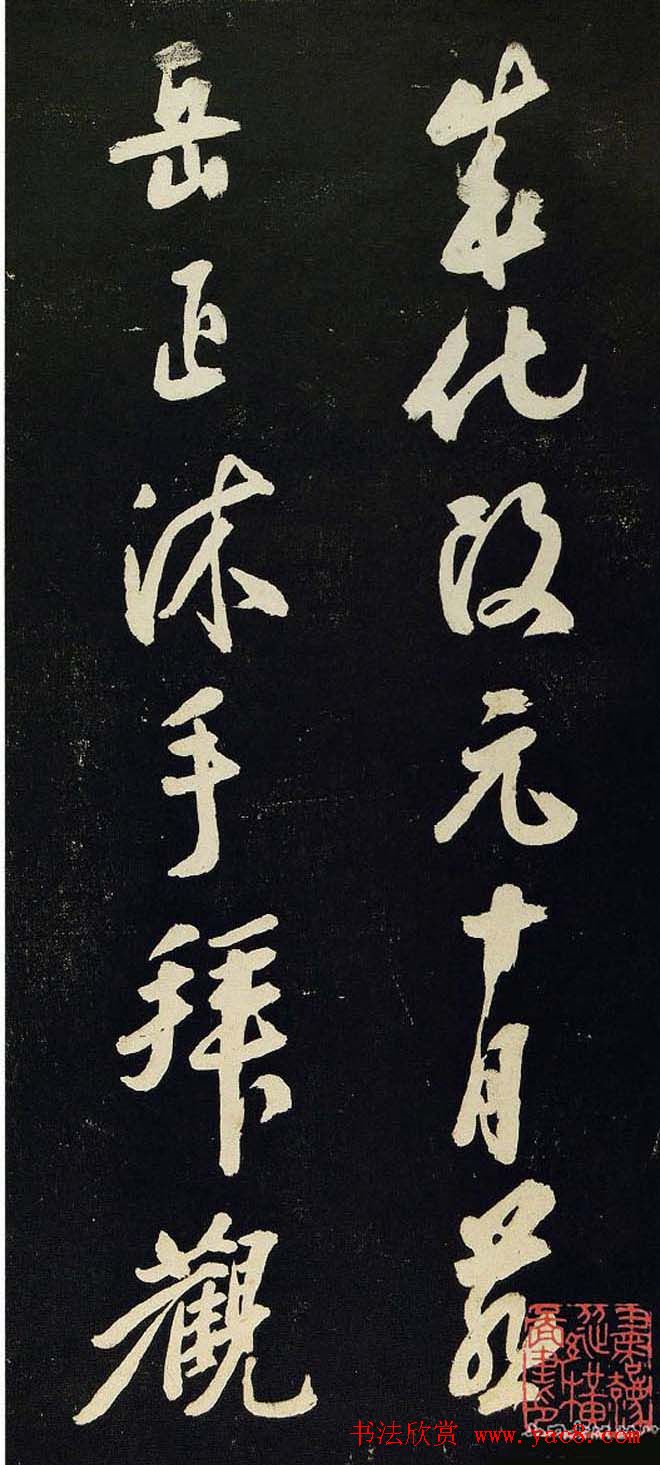 成化改元十月燕
岳正沐手拜觀
书法欣赏 www.yac8.com